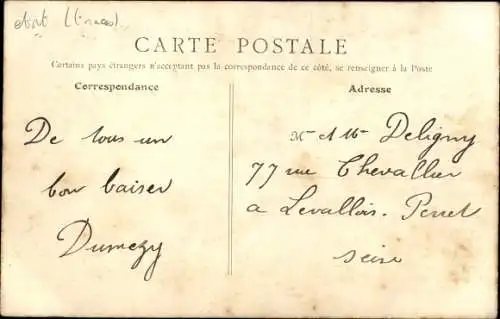 état (traces)
CARTE POSTALE
Certains pays étrangers n'acceptant pas la correspondance de ce côté, se renseigner à la Poste
Correspondance
De tous un
bon baiser
Dumezy
Adresse
Mr et Mme Deligny
77 rue Chevallier
a Levallois-Perret
Seine